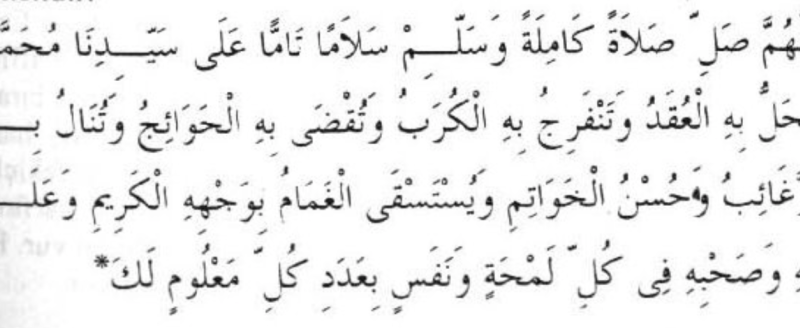 لَّهُمَّ صَلِّ صَلاَةً كَامِلَةً وَسَلِّمْ سَلاَمًا تَامًّا عَلَى سَيِّدِنَا مُحَمَّ
حَلُّ بِهِ الْعُقَدُ وَتَنْفَرِجُ بِهِ الْكُرَبُ وَتُقْضَى بِهِ الْحَوَائِجُ وَتُنَالُ بِـ
رَّغَائِبُ وَحُسْنُ الْخَوَاتِمِ وَيُسْتَسْقَى الْغَمَامُ بِوَجْهِهِ الْكَرِيمِ وَعَلَـ
هِ وَصَحْبِهِ فِى كُلِّ لَمْحَةٍ وَنَفَسٍ بِعَدَدِ كُلِّ مَعْلُومٍ لَكَ*